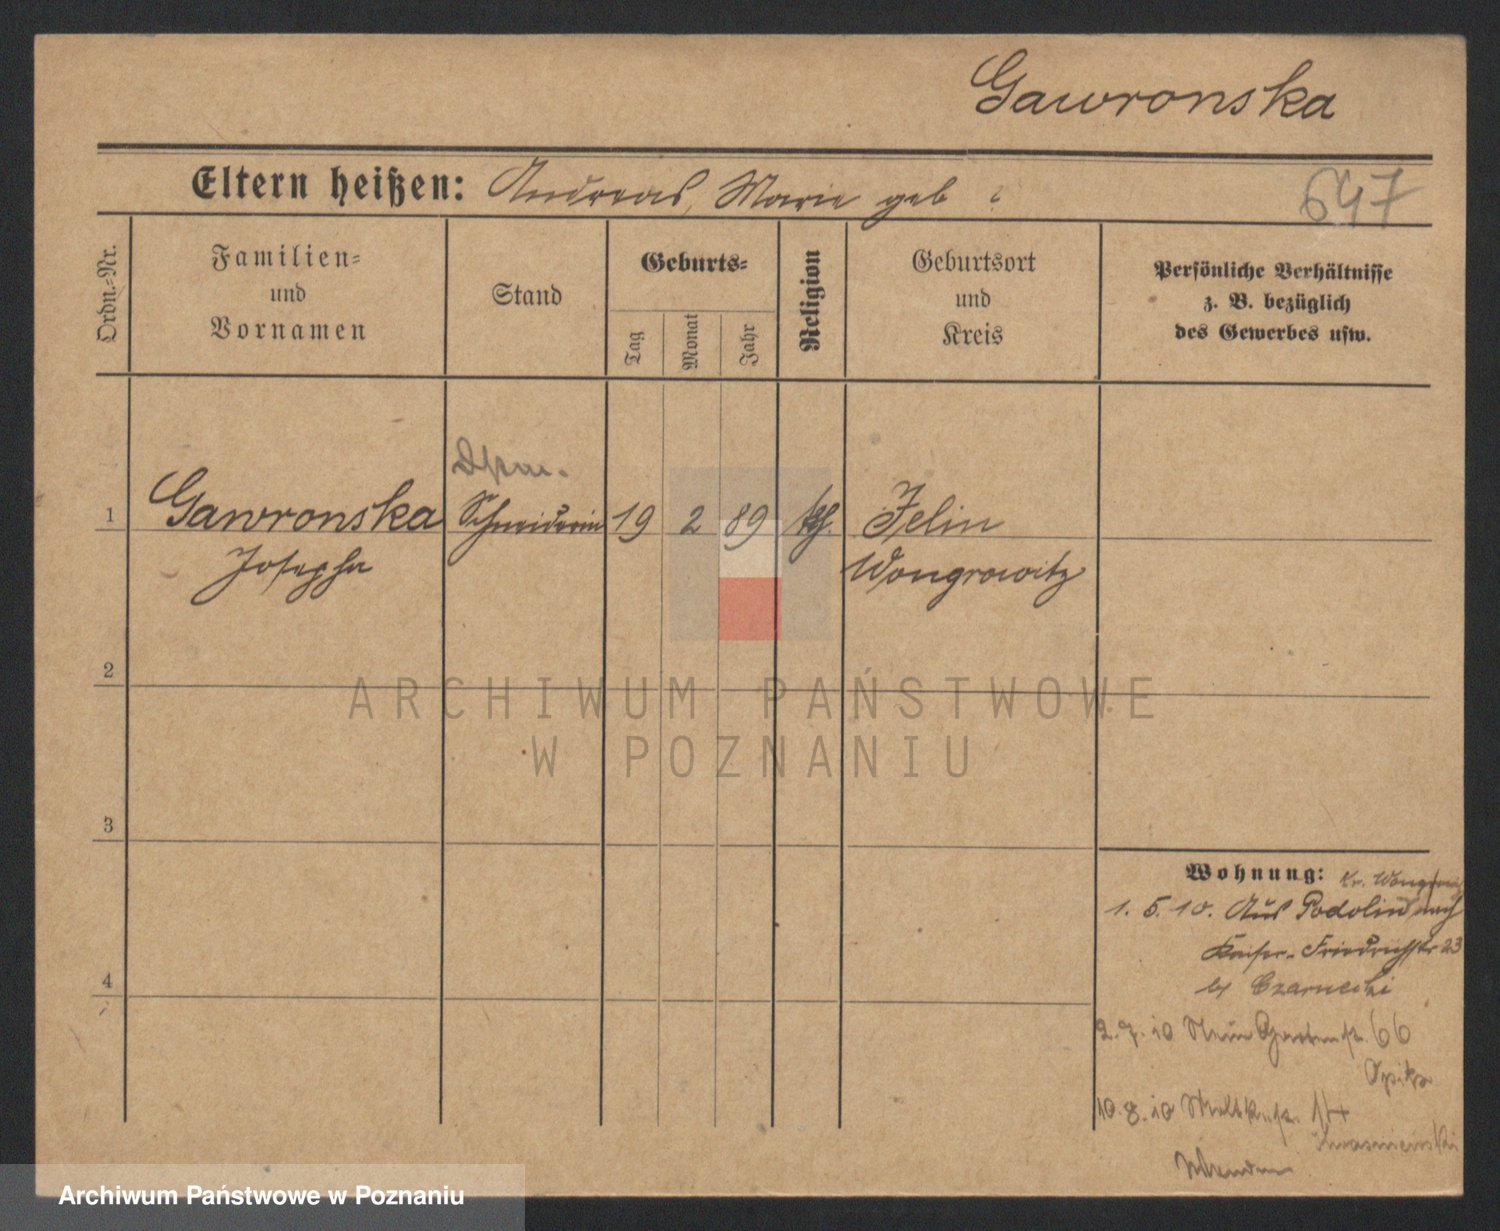 Gawronska
Eltern heißen: Andreas, Marie geb ?
647
Ordn.-Nr.
Familien-
und
Vornamen
Stand
Geburts-
Tag
Monat
Jahr
Religion
Geburtsort
und
Kreis
Persönliche Verhältnisse
z. B. bezüglich
des Gewerbes usw.
1
Gawronska
Josepha
Schneiderin
19
2
89
kth.
Jelin
Wongrowitz
2
3
4
Wohnung:
Kr. Wongrowitz
1. 5. 10. Aus Podolin nach
Kaiser-Friedrichstr 23
by Czarnecki
2. 7. 10 Gartenstr. 66
10. 8. 10 Moltkestr. 14
ARCHIWUM PAŃSTWOWE
W POZNANIU
Archiwum Państwowe w Poznaniu